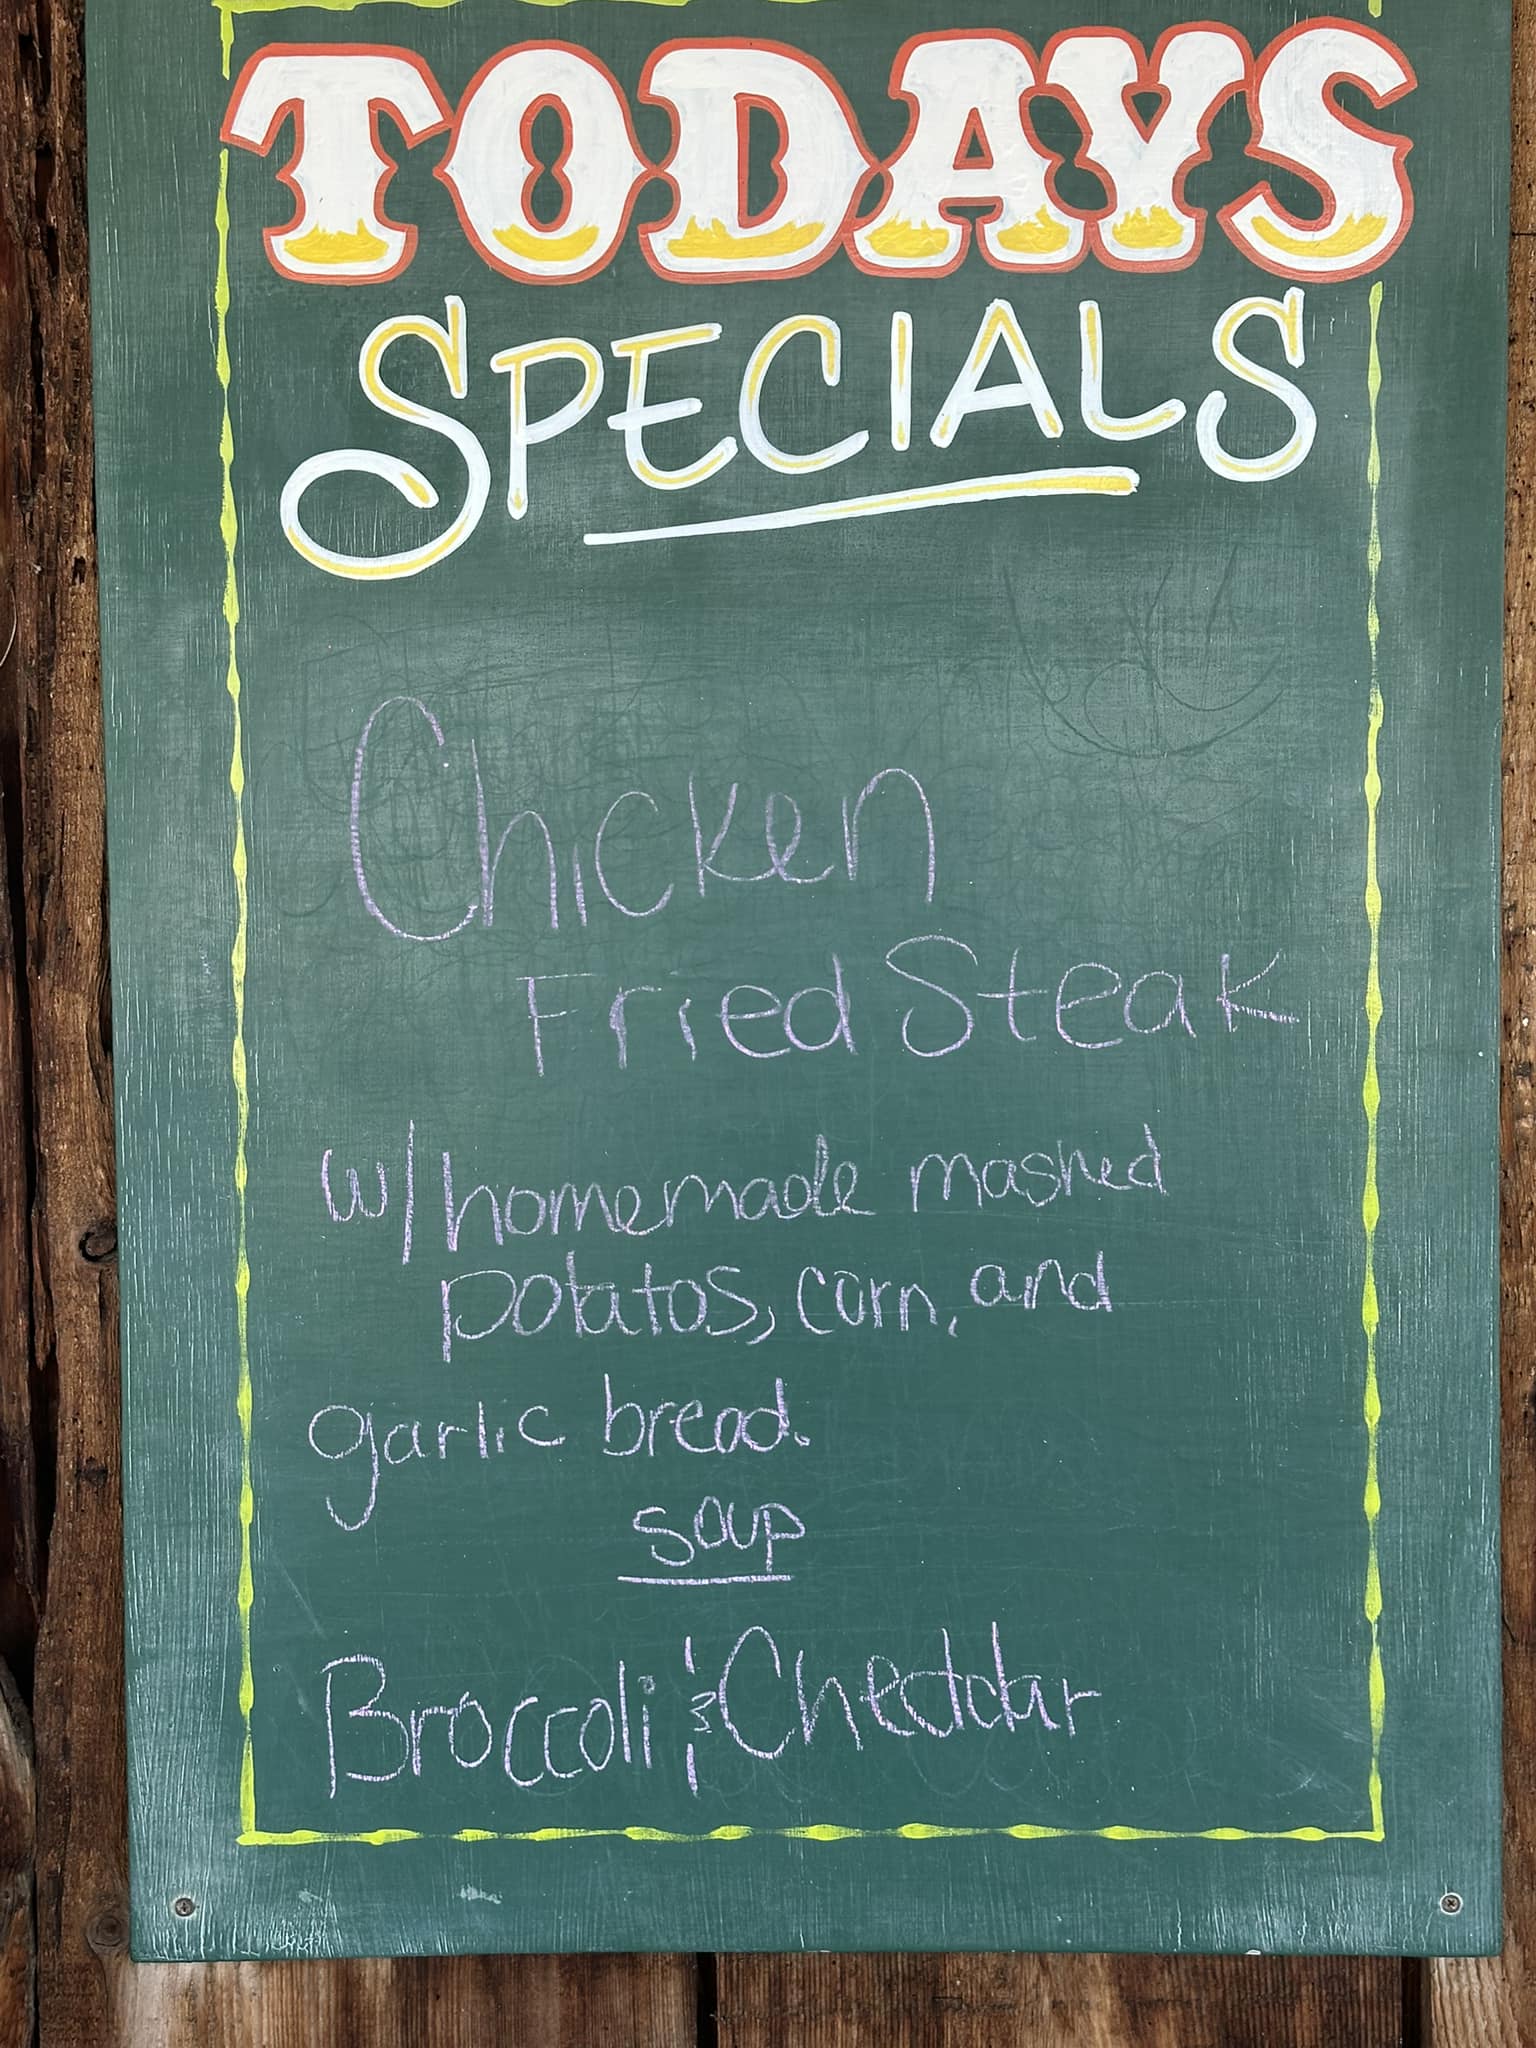 TODAYS
SPECIALS
Chicken
Fried Steak
w/homemade mashed
potatos, corn, and
garlic bread.
soup
Broccoli & Cheddar